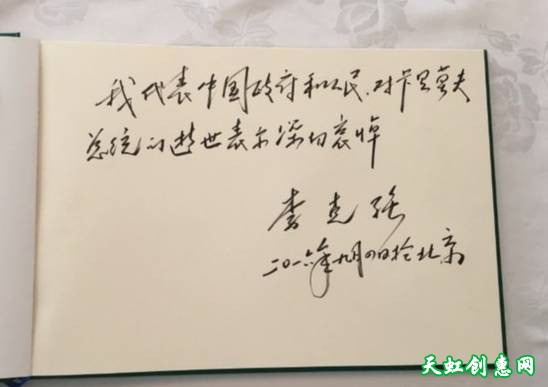 我代表中国政府和人民，对卡里莫夫
总统的逝世表示深切哀悼
李克强
二〇一六年九月四日于北京
天虹创意网